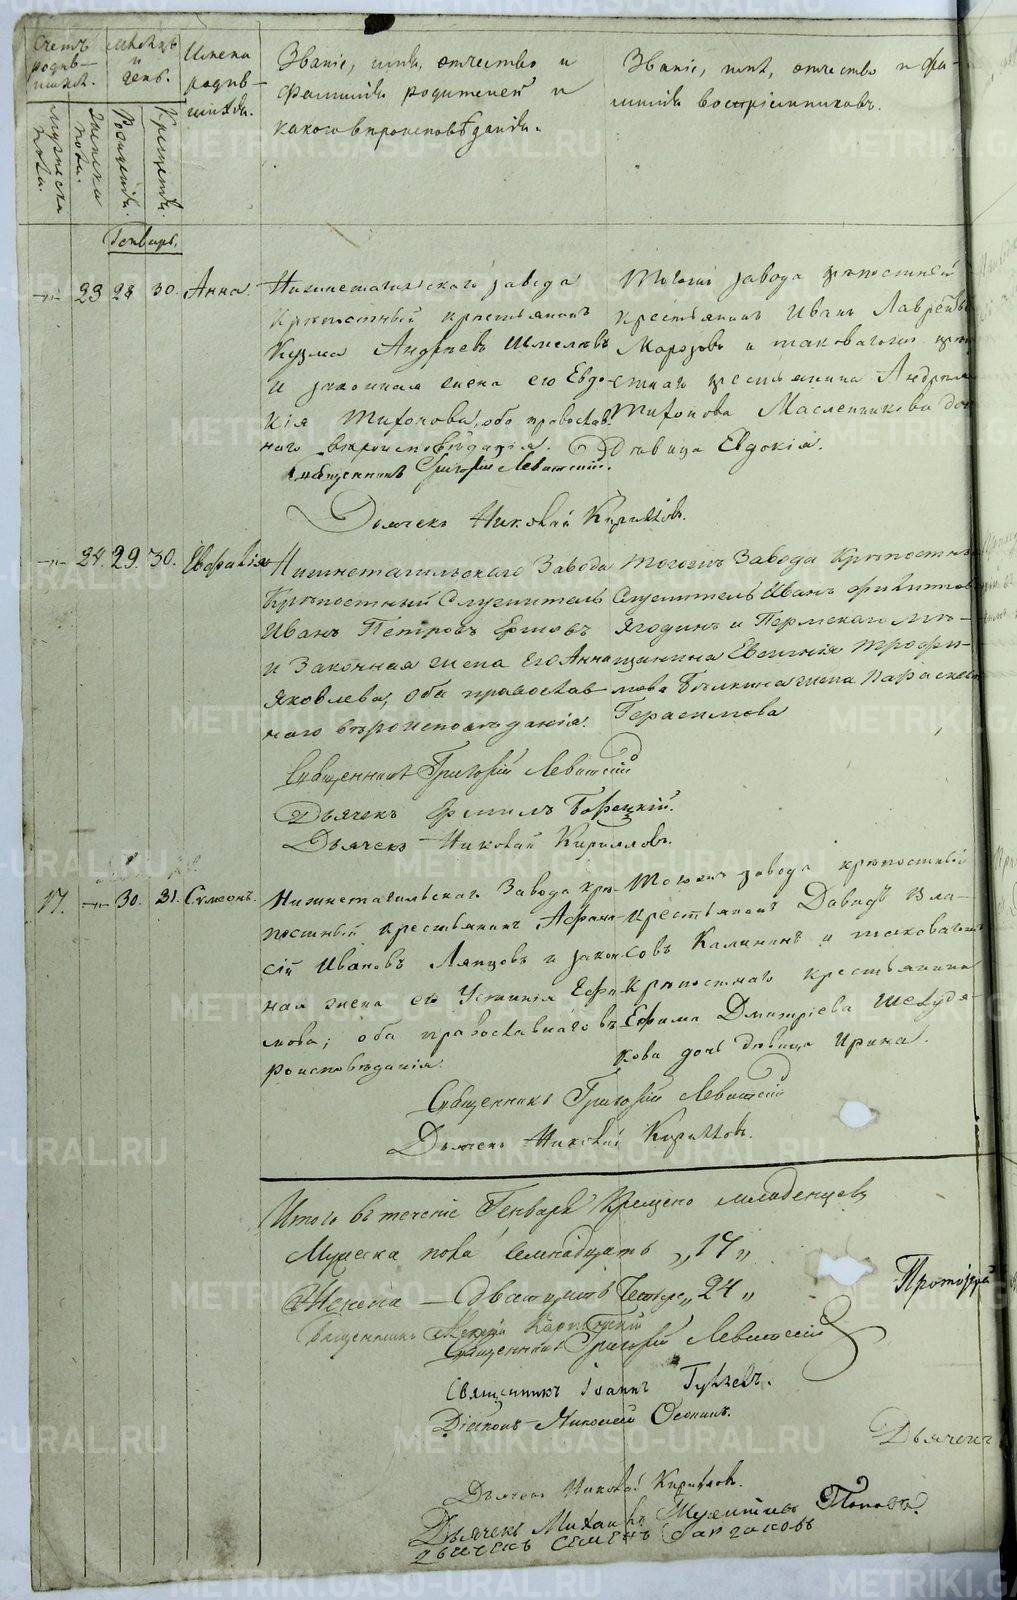 Счетъ родив-шихся.
Мѣсяцъ и день.
Имена родив-шихся.
Званіе, имя, отчество и
фамилія родителей и
какого вѣроисповѣданія.
Званіе, имя, отчество и фа-
милія воспріемниковъ.
Мужеска пола.
Женска пола.
Рожденія.
Крещенія.
Генварь.
23 28 30. Анна.
Нижнетагильскаго завода
крѣпостный крестьянинъ
Кузма Андреевъ Шмелевъ
и законная жена его Евдо-
кія Тифонова, оба православ-
наго вѣроисповѣданія.
Священникъ Григорій Левитскій.
Дьячекъ Николай Кирилловъ.
Тогожъ завода крѣпостный
крестьянинъ Иванъ Лаврентьевъ
Морозовъ и таковагожъ крѣпо-
стнаго крестьянина Андрея
Тифонова Масленникова дочь
Дѣвица Евдокія.
24. 29. 30. Евфалія
Нижнетагильскаго Завода
Крѣпостный Служитель
Иванъ Петровъ Ершовъ
и Законная жена его Анна
Яковлева, Оба православ-
наго вѣроисповѣданія.
Священникъ Григорій Левитскій
Дьячекъ Ермилъ Борецкій.
Дьячекъ Николай Кирилловъ.
Тогожъ Завода Крѣпостный
Служитель Иванъ Филиповъ
Ягодинъ и Пермскаго мѣ-
щанина Евгенія Трофи-
мова Бѣлкина жена Параскева
Герасимова
17. 30. 31. Сумеонъ.
Нижнетагильскаго Завода крѣ-
постный крестьянинъ Афана-
сій Ивановъ Ляпцовъ и закон-
ная жена его Устинія Ефи-
мова; оба православнаго вѣ-
роисповѣданія.
Тогожъ завода крѣпостный
крестьянинъ Давидъ Вла-
совъ Калининъ и таковагожъ
Крѣпостнаго крестьянина
Ефима Дмитріева Шекудя-
кова дочь дѣвица Ирина.
Священникъ Григорій Левитскій
Дьячекъ Николай Кирилловъ.
Итого въ теченіе Генваря Крещено младенцевъ
Мужеска пола Семнадцать „17„
Женска — Двадцать Четыре „24„
Протоіерей
Священникъ Алексій Карпинскій
Священникъ Григорій Левитскій
Священникъ Іоаннъ
Діаконъ Николай Осонинъ.
Дьячекъ
Дьячекъ Николай Кирилловъ.
Дьячекъ Михаилъ Попова
Дьячекъ Семенъ
METRIKI.GASO-URAL.RU